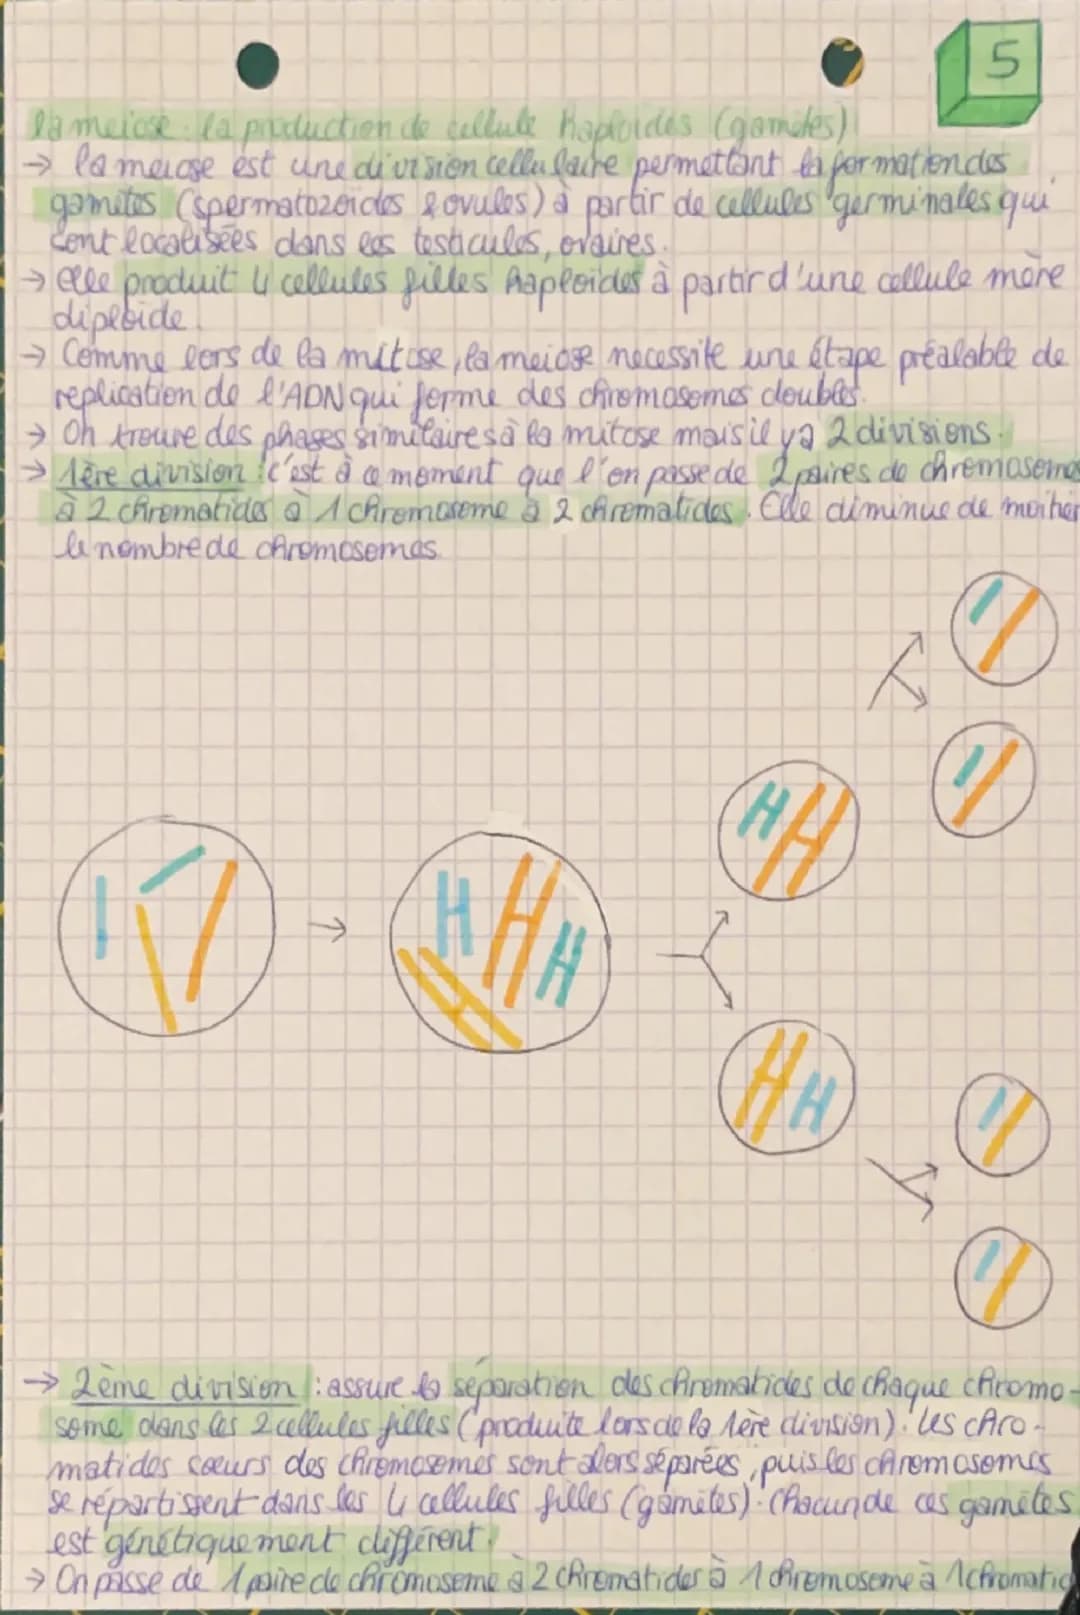 5
La meiose : la production de cellule haploïdes (gamètes)
→ la meiose est une division cellulaire permettant la formation des
gamètes (spermatozoïdes & ovules) à partir de cellules germinales qui
sont localisées dans les testicules, ovaires.
→ elle produit 4 cellules filles haploïdes à partir d'une cellule mère
diploïde.
→ Comme lors de la mitose, la meiose necessite une étape préalable de
replication de l'ADN qui forme des chromosomes doubles.
→ On trouve des phases similaires à la mitose mais il ya 2 divisions.
→ 1ère division : c'est à ce moment que l'on passe de 2 paires de chromosomes
à 2 chromatides à 1 chromosome à 2 chromatides. Elle diminue de moitier
le nombre de chromosomes
→ 2ème division : assure la séparation des chromatides de chaque chromo-
some dans les 2 cellules filles (produite lors de la 1ère division). Les chro-
matides sœurs des chromosomes sont alors séparées, puis les chromosomes
se répartissent dans les 4 cellules filles (gamètes). Chacun de ces gamètes
est génétiquement différent.
→ On passe de 1 paire de chromosome à 2 chromatides à 1 chromosome à 1 chromatid